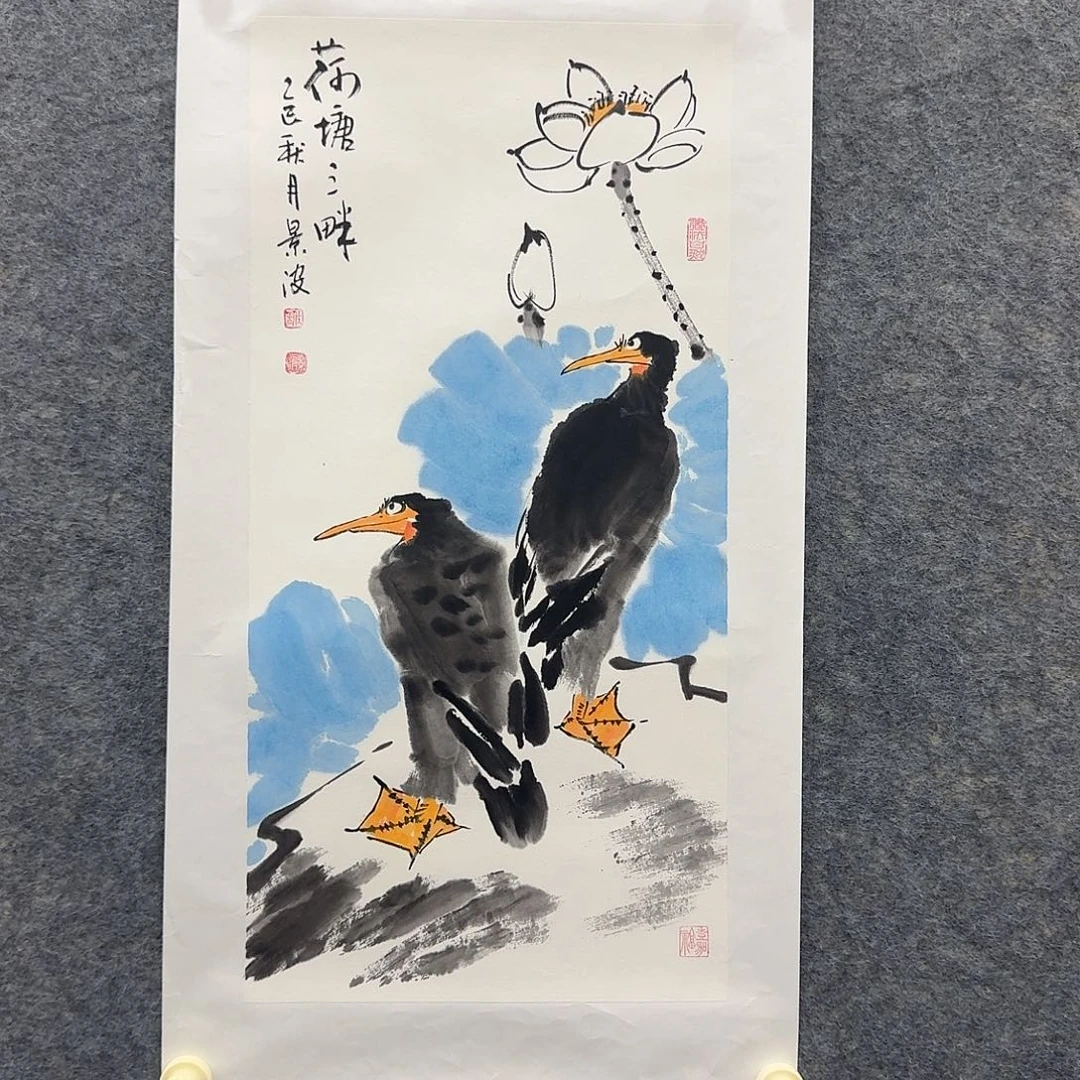 荷塘之畔
乙巳秋月景波